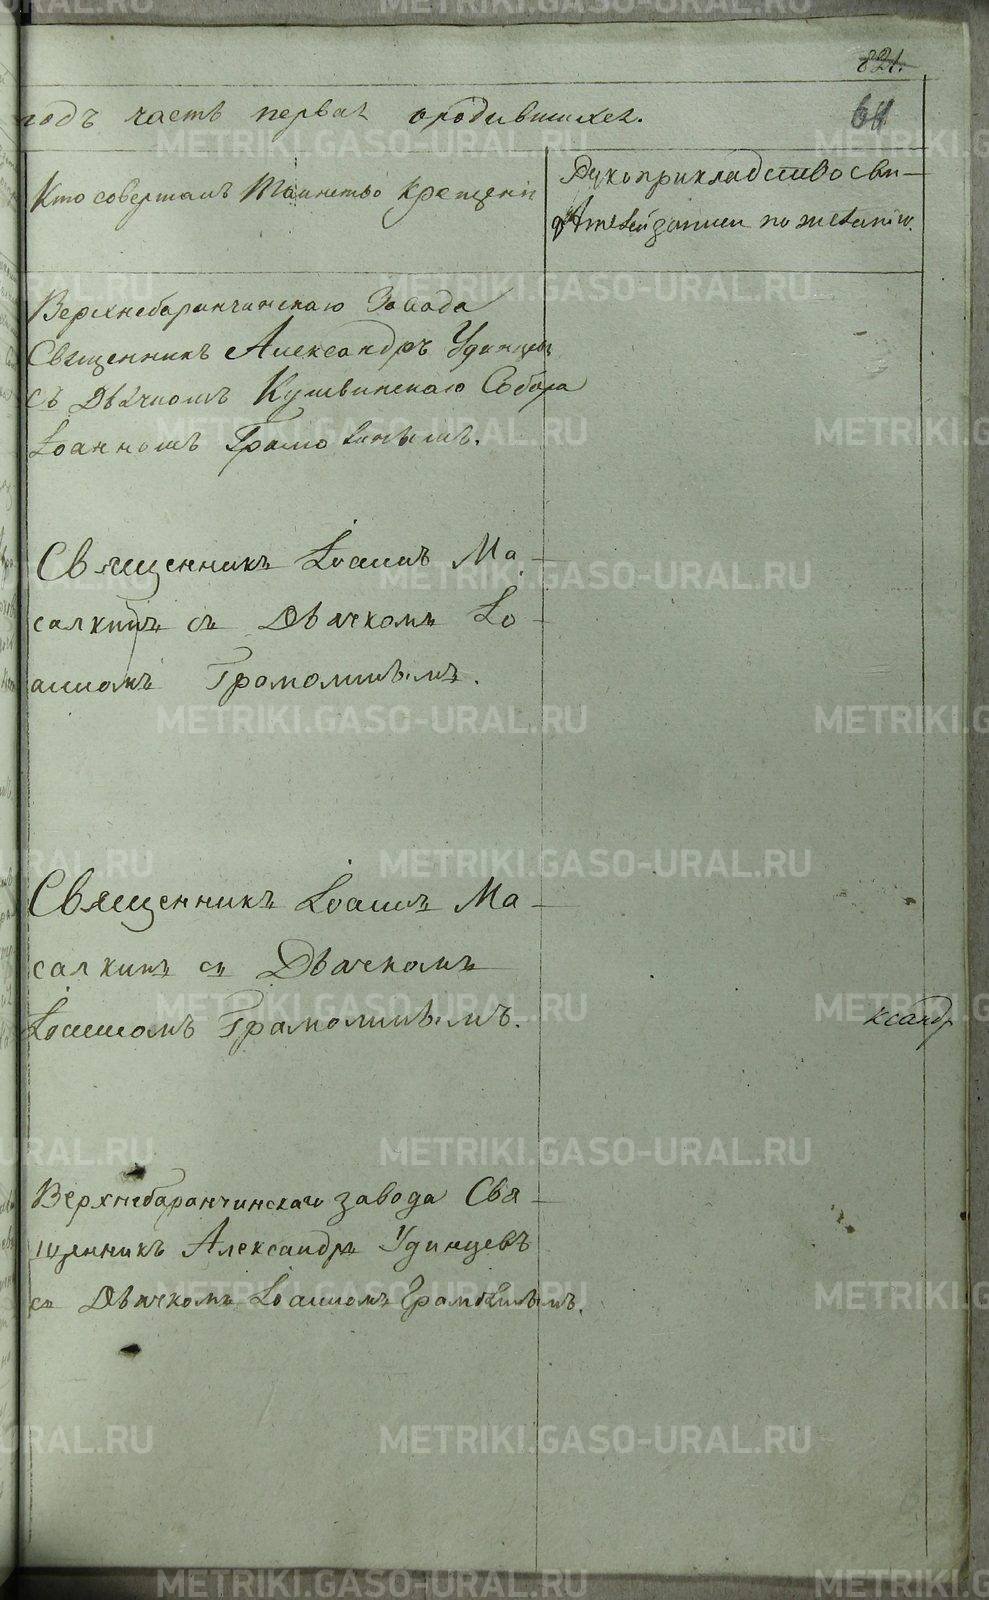 821.
годъ часть первая ородившихся.
Кто совершалъ таинство крещенiя
Рукоприкладство сви-
дѣтелей записи по желанiю.
Верхнебаранчинскаго Завода
Священникъ Александръ Удинцевъ
съ Дьячкомъ Кушвинскаго Собора
Iоанномъ Грамолинымъ.
Священникъ Iоаннъ Ма-
салкинъ съ Дьячкомъ Iо-
анномъ Грамолинымъ.
Священникъ Iоаннъ Ма-
салкинъ съ Дьячкомъ
Iоанномъ Грамолинымъ.
ксандр
Верхнебаранчинскаго завода Свя-
щенникъ Александръ Удинцевъ
съ Дьячкомъ Iоанномъ Грамолинымъ.